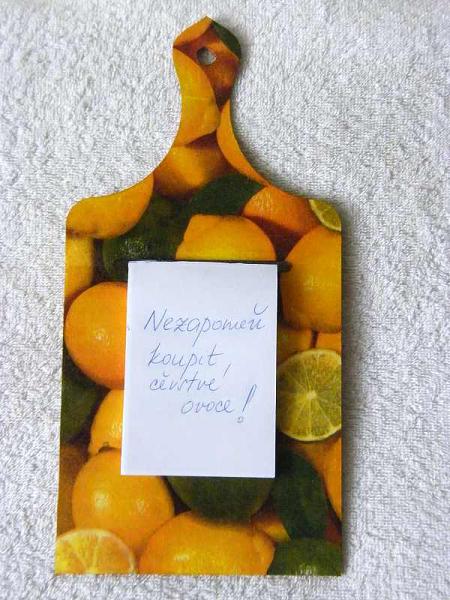 Nezapomeň
koupit
čerstvé
ovoce!